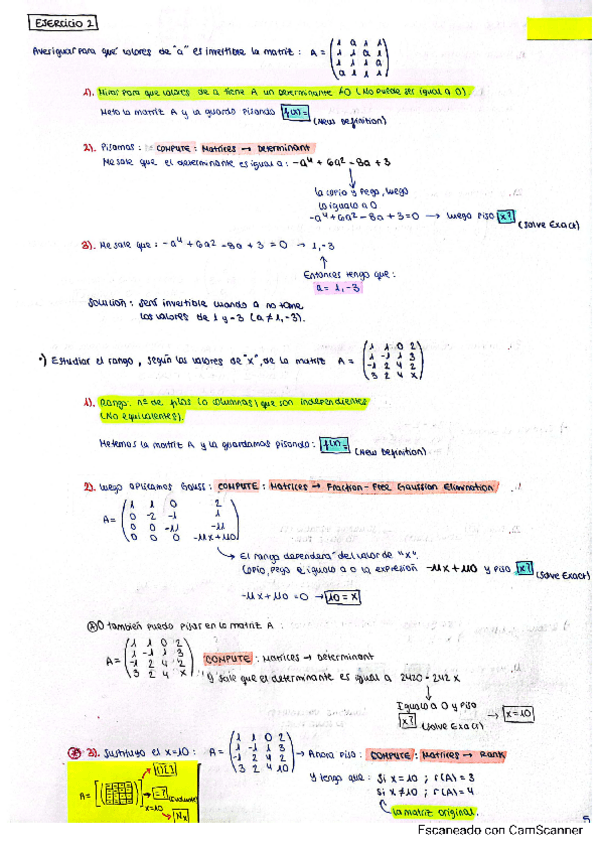 EJERCICIO 2
Averiguar para qué valores de "a" es invertible la matriz: A = (1 a 1 1
1 1 a 1
1 1 1 a
a 1 1 1)
1). Mirar para que valores de a tiene A un determinante ≠0 (No puede ser igual a 0).
Meto la matriz A y la guardo pisando f(x)= (New Definition)
2). Pisamos: COMPUTE: Matrices → Determinant
Me sale que el determinante es igual a: -a⁴ + 6a² - 8a + 3
la copio y pego, luego
lo igualo a 0
-a⁴ + 6a² - 8a + 3 = 0 → luego piso x? (Solve Exact)
3). Me sale que: -a⁴ + 6a² - 8a + 3 = 0 → 1, -3
Entonces tengo que:
a = 1, -3
Solución: será invertible cuando a no tome
los valores de 1 y -3 (a ≠ 1, -3).
•) Estudiar el rango, según los valores de "x", de la matriz A = (1 1 0 2
1 -1 1 3
-1 2 4 2
3 2 4 x)
1). Rango: nº de filas (o columnas) que son independientes
(No equivalentes).
Metemos la matriz A y la guardamos pisando: f(x)= (New Definition)
2). Luego aplicamos Gauss: COMPUTE: Matrices → Fraction-Free Gaussian Elimination
A = (1 1 0 2
0 -2 -1 1
0 0 -11 -11
0 0 0 -11x+110)
El rango dependerá del valor de "x".
Copio, pego e igualo a 0 la expresión -11x + 110 y piso x? (Solve Exact)
-11x + 110 = 0 → 10 = x
O también puedo pisar en la matriz A:
A = (1 1 0 2
1 -1 1 3
-1 2 4 2
3 2 4 x)
COMPUTE: Matrices → Determinant
y sale que el determinante es igual a 2420 - 242x
Igualo a 0 y piso
x? (Solve Exact) → x = 10
3). Sustituyo el x=10: A = (1 1 0 2
1 -1 1 3
-1 2 4 2
3 2 4 10) → Ahora piso: COMPUTE: Matrices → Rank
y tengo que: Si x = 10; r(A) = 3
Si x ≠ 10; r(A) = 4
La matriz original.
A =
x=10
5
Escaneado con CamScanner